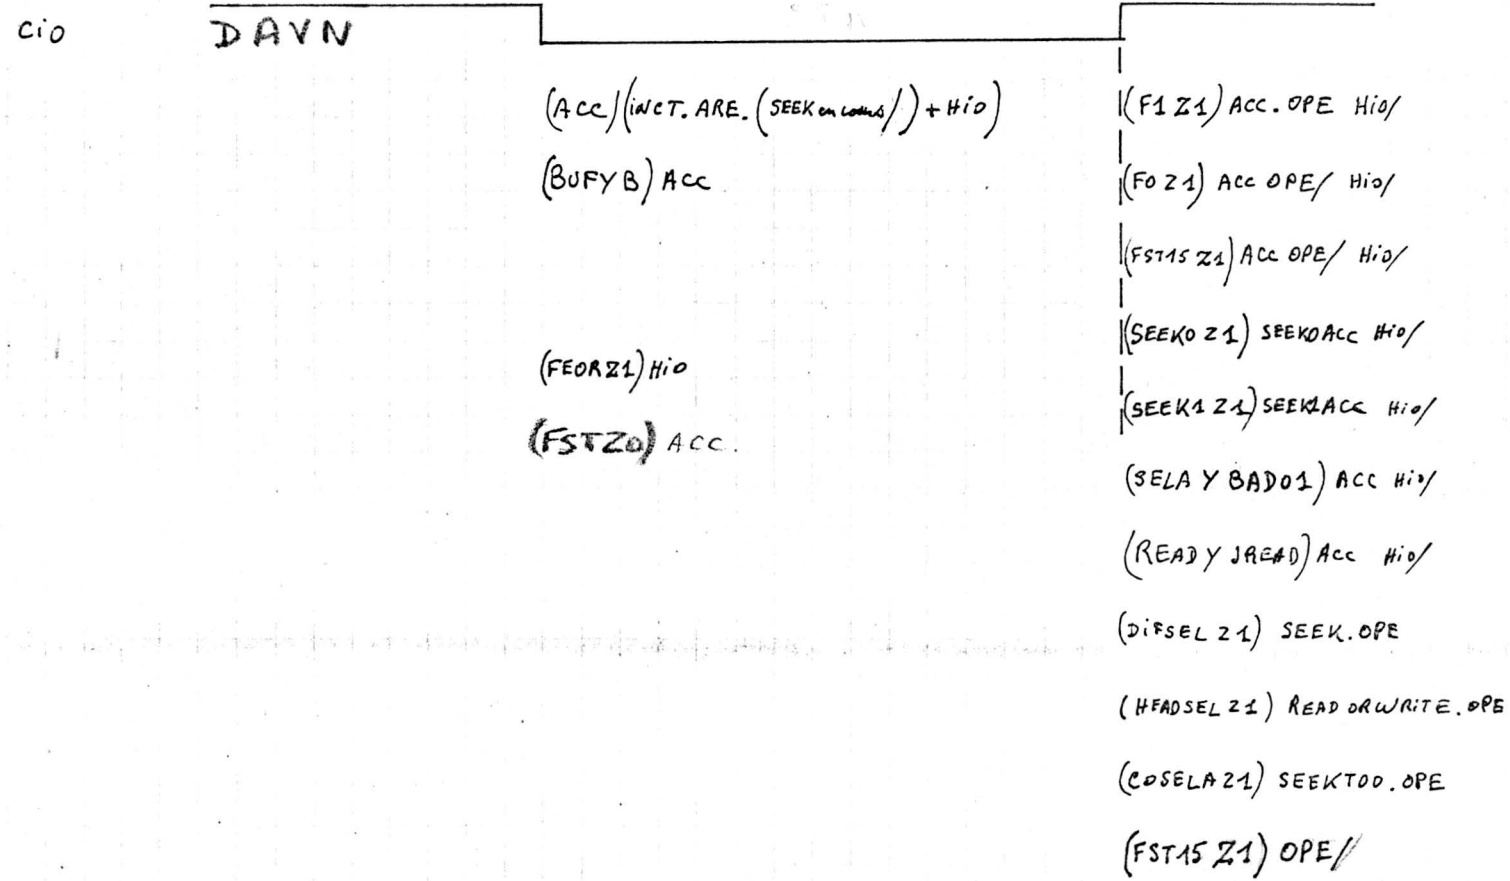 cio DAVN
(ACC)(INCT.ARE.(SEEK en cours/)+Hio) (F1 Z1) ACC.OPE Hio/
(BUFYB) ACC (F0 Z1) ACC OPE/ Hio/
(FST15 Z1) ACC OPE/ Hio/
(SEEK0 Z1) SEEK0ACC Hio/
(FEORZ1) Hio
(SEEK1 Z1) SEEK1ACC Hio/
(FSTZ0) ACC.
(SELA Y BAD01) ACC Hio/
(READ Y JREAD) ACC Hio/
(DiFSEL Z1) SEEK.OPE
(HEADSEL Z1) READ OR WRiTE.OPE
(COSELA Z1) SEEKTOO.OPE
(FST15 Z1) OPE/